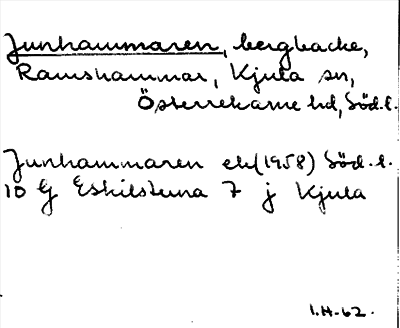 Junhammaren, bergbacke,
Ramshammar, Kjula sn,
Österrekarne hd, Söd.l.
Junhammaren ek(1958) Söd.l.
10 G Eskilstuna 7 j Kjula
I.H-62.